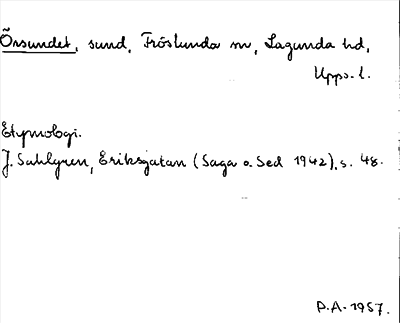 Örsundet, sund, Fröslunda sn, Lagunda hd,
Upps. l.
Etymologi.
J. Sahlgren, Eriksgatan (Saga o. Sed 1942), s. 48.
P.A. 1957.